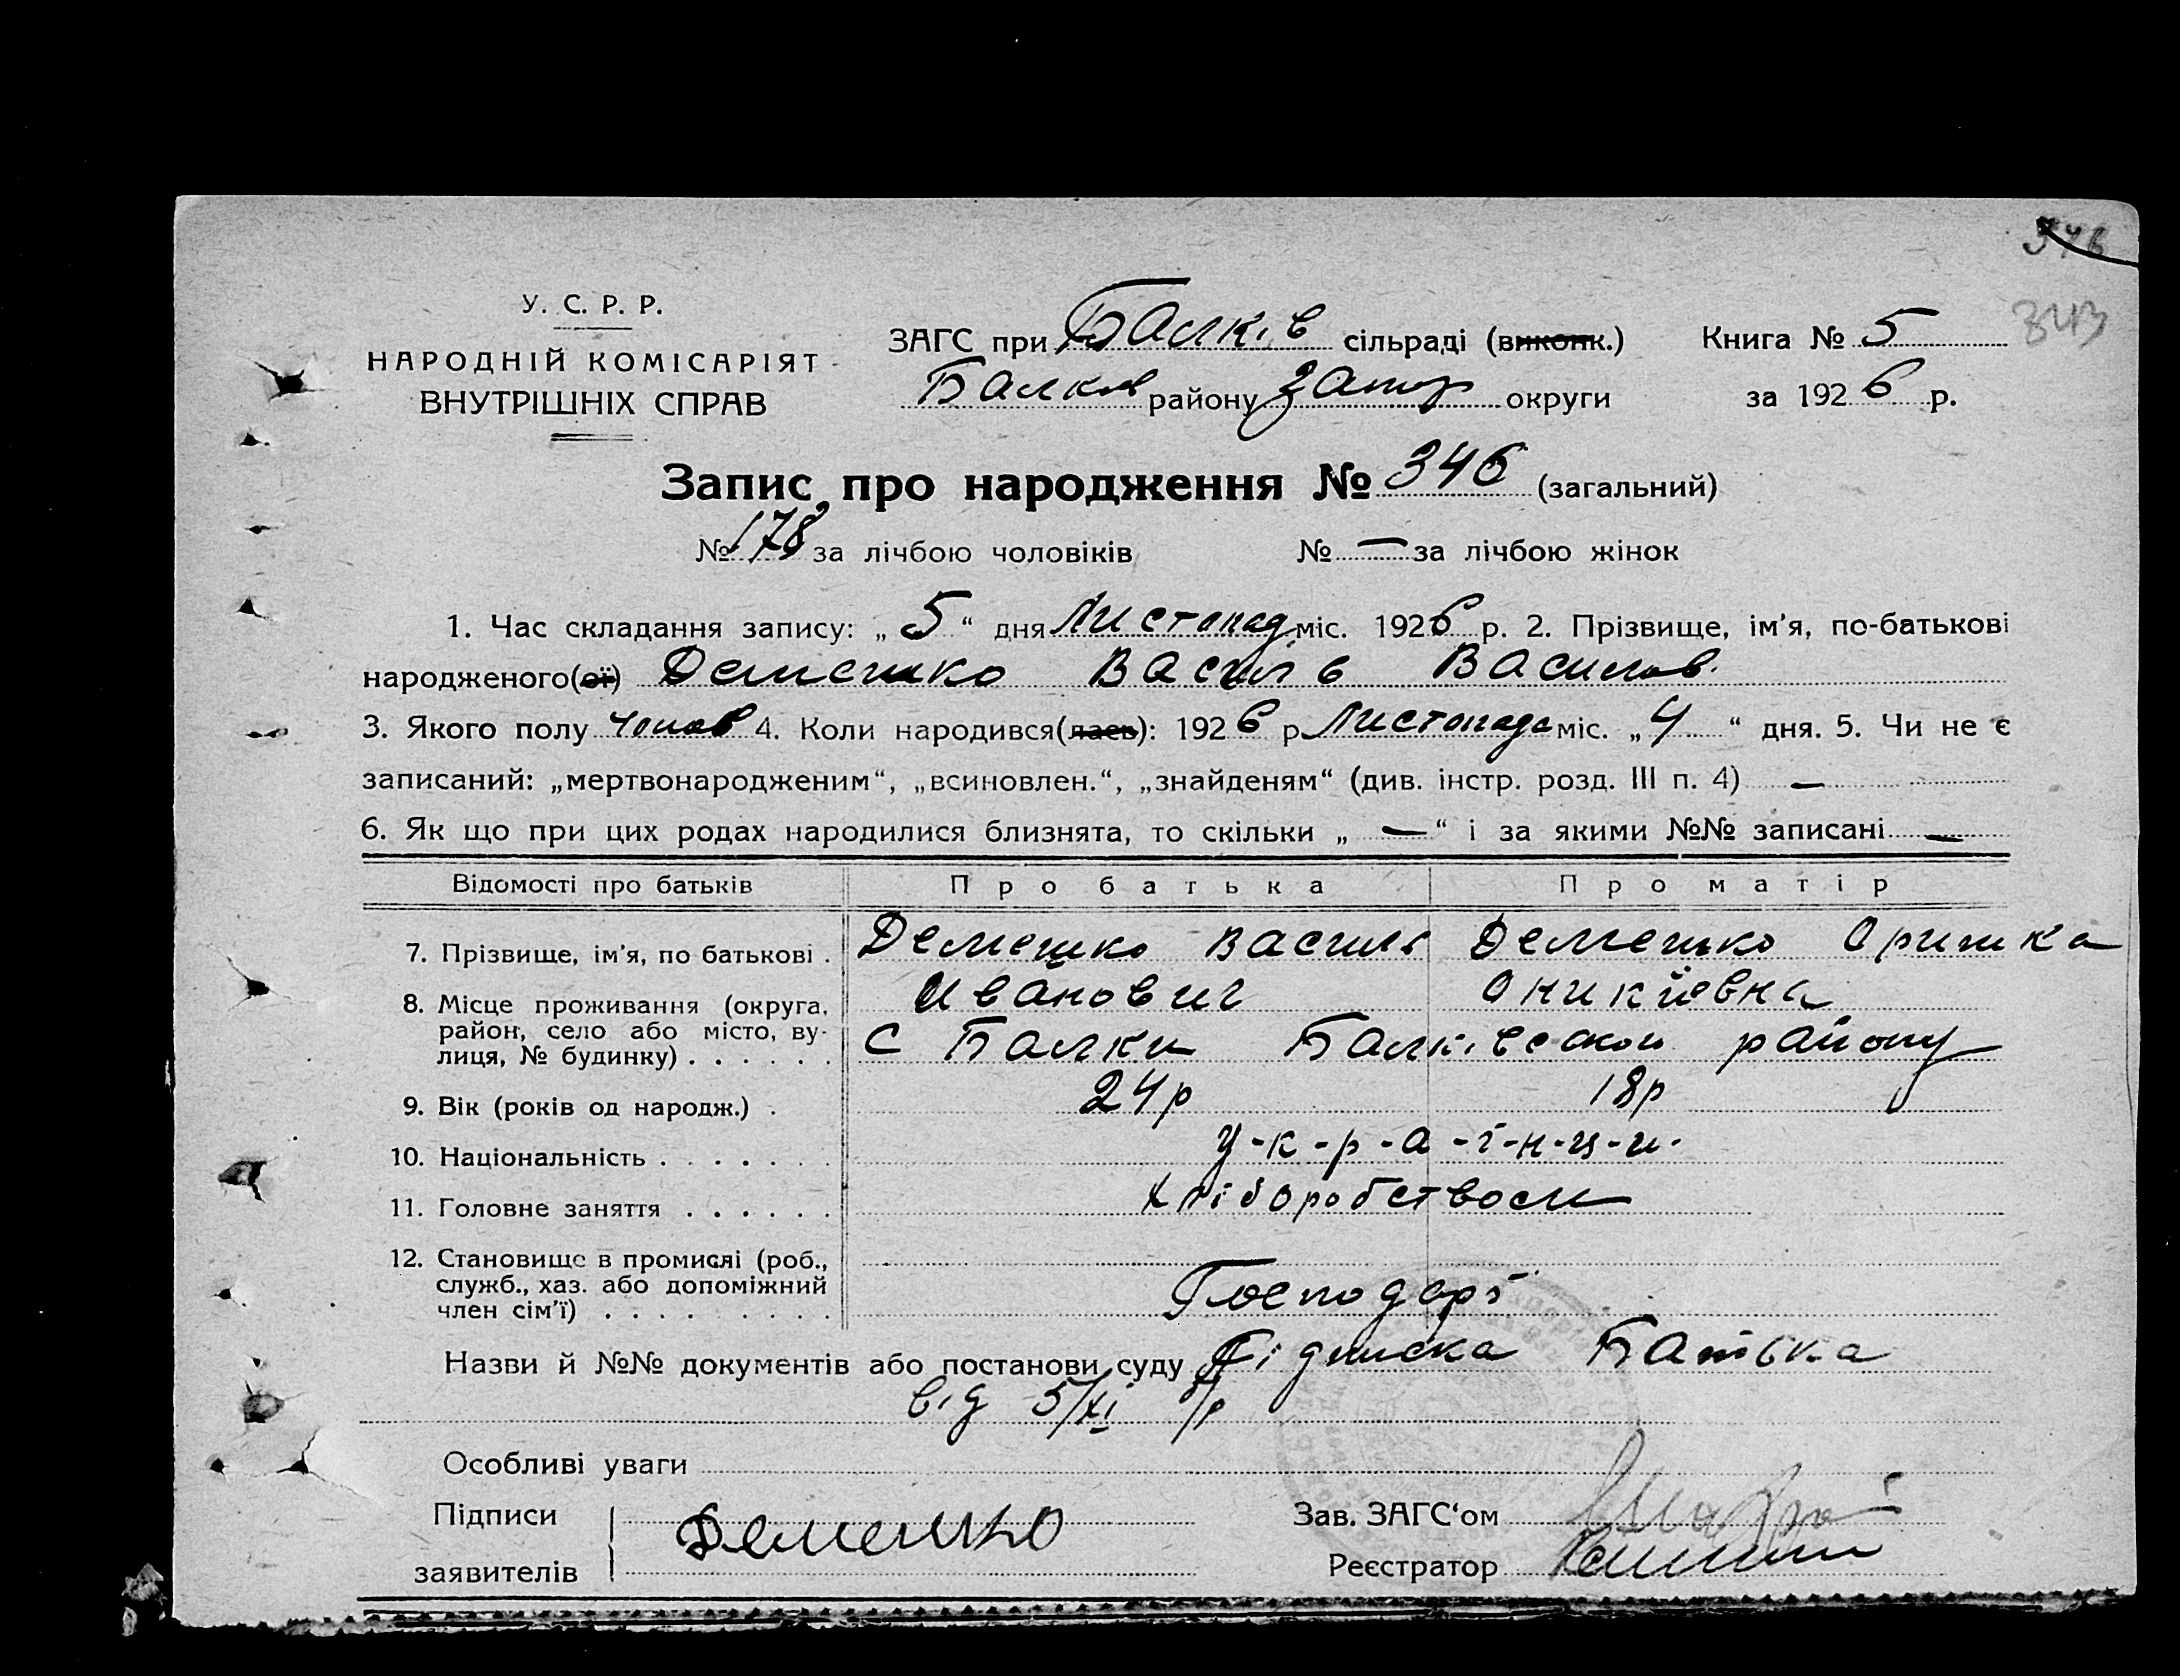 346
343
У. С. Р. Р.
НАРОДНІЙ КОМІСАРІЯТ
ВНУТРІШНІХ СПРАВ
ЗАГС при Балків сільраді (виконк.) Книга № 5
Балков району Запор округи за 1926 р.
Запис про народження № 346 (загальний)
№ 178 за лічбою чоловіків № — за лічбою жінок
1. Час складання запису: „ 5 “ дня Листопад міс. 1926 р. 2. Прізвище, ім’я, по-батькові
народженого(ої) Демешко Василь Васильов.
3. Якого полу чолов 4. Коли народився(лась): 1926 р Листопада міс. „ 4 “ дня. 5. Чи не є
записаний: „мертвонародженим“, „всиновлен.“, „знайденям“ (див. інстр. розд. III п. 4) —
6. Як що при цих родах народилися близнята, то скільки „ — “ і за якими №№ записані —
Відомості про батьків Про батька Про матір
7. Прізвище, ім’я, по батькові . Демешко Василь Демешко Оришка
Иванович Оникіевна
8. Місце проживання (округа,
район, село або місто, ву-
лиця, № будинку) . . . . . . С Балки Балківской району
9. Вік (років од народж.) . 24р 18р
10. Національність . . . . . . . у-к-р-а-ї-н-ц-и.
11. Головне заняття . . . . . . хліборобством
12. Становище в промислі (роб.,
служб., хаз. або допоміжний
член сім’ї) . . . . . . . . . Господарі
Назви й №№ документів або постанови суду Підписка Батька
від 5/XI
Особливі уваги
Підписи
заявителів Демешко
Зав. ЗАГС‘ом
Реєстратор